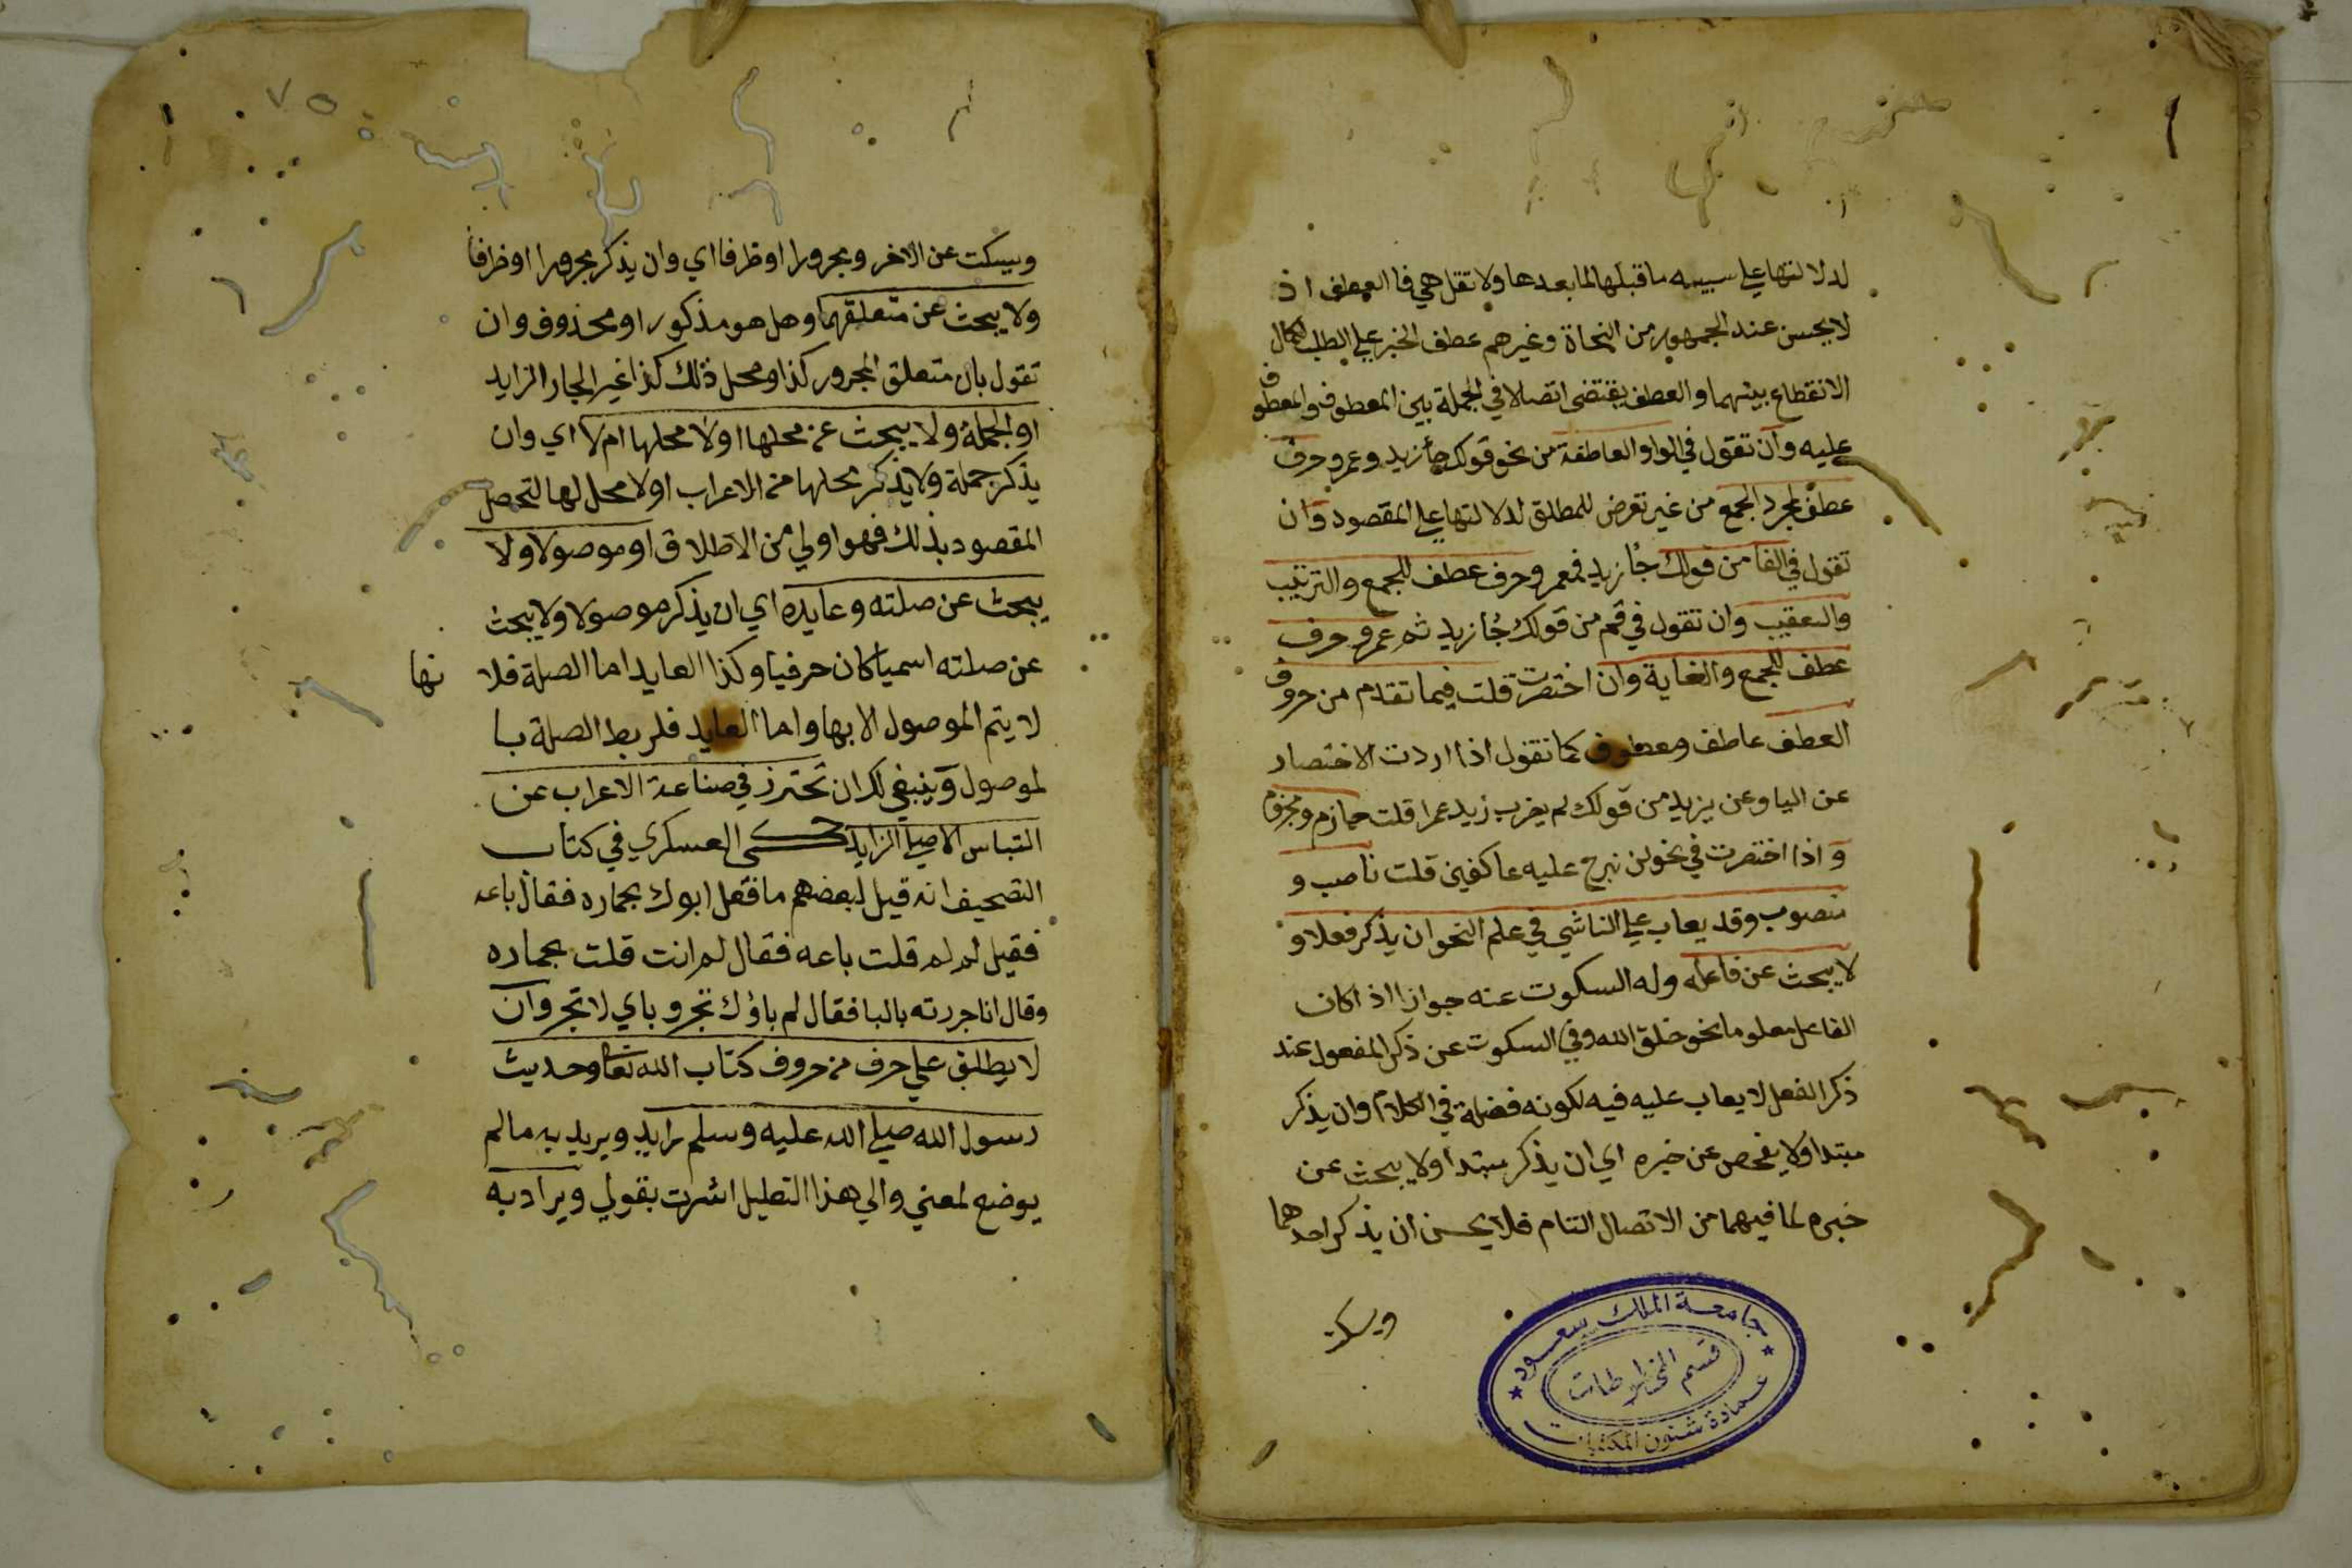 لدلالتها على سببيه ماقبلها لما بعدها ولا تقل هي فا العطف اذ
لا يحسن عند الجمهور من النحاة وغيرهم عطف الخبر على الطلب لكمال
الانقطاع بينهما والعطف يقتضى اتصالا في الجملة بين المعطوف والمعطوف
عليه وان تقول في الواو العاطفة من نحو قولك جأ زيد وعمرو حرف
عطف لمجرد الجمع من غير تعرض للمطلق لدلالتها على المقصود وان
تقول في الفا من قولك جُا زيد فعمرو حرف عطف للجمع والترتيب
والتعقيب وان تقول في ثم من قولك جُا زيد ثم عمرو حرف
عطف للجمع والغاية وان اختصرت قلت فيما تقدم من حروف
العطف عاطف ومعطوف كما تقول اذا اردت الاختصار
عن اليا وعن يزيد من قولك لم يضرب زيد عمرا قلت جازم ومجزوم
و اذا اختصرت في نحو لن نبرح عليه عاكفين قلت ناصب و
منصوب وقد يعاب على الناشي في علم النحو ان يذكر فعلا و
لا يبحث عن فاعله وله السكوت عنه جوازا اذ اكان
الفاعل معلوما نحو خلق الله وفي السكوت عن ذكر المفعول عند
ذكر الفعل لا يعاب عليه فيه لكونه فضلة في الكلام وان يذكر
مبتدا ولا يفحص عن خبره اي ان يذكر مبتدأ ولا يبحث عن
خبره لما فيهما من الاتصال التام فلا يحسن ان يذكر احدهما
ويسكت
جامعة الملك سعود
قسم المخطوطات
عمادة شئون المكتبات
٧٥
ويسكت عن الاخر ومجرورا اوظرفا اي وان يذكر مجرورا اوظرفا
ولا يبحث عن متعلقهما وهل هو مذكور او محذوف وان
تقول بان متعلق المجرور كذا ومحل ذلك كذا غير الجار الزايد
او الجملة ولا يبحث عن محلها اولا محلها ام لا اي وان
يذكر جملة ولا يذكر محلها من الاعراب اولا محل لها لتحصل
المقصود بذلك فهو اولي من الاطلاق او موصولا ولا
يبحث عن صلته وعايده اي ان يذكر موصولا ولا يبحث
عن صلته اسميا كان حرفيا وكذا العايد اما الصلة فلا نها
لا يتم الموصول الا بها واما العايد فلربط الصلة با
لموصول وينبغي لك ان تحترز في صناعة الاعراب عن
التباس الاصلي الزايد حكى العسكري في كتاب
التصحيف انه قيل لبعضهم مافعل ابوك بحماره فقال باعه
فقيل له لم قلت باعه فقال لم انت قلت بحماره
وقال انا جررته بالبا فقال لم باؤك تجر وباي لا تجر وان
لا يطلق على حرف من حروف كتاب الله تعا وحديث
رسول الله صلى الله عليه وسلم زايد ويريد به مالم
يوضع لمعني والي هذا التعليل اشرت بقولي ويراد به